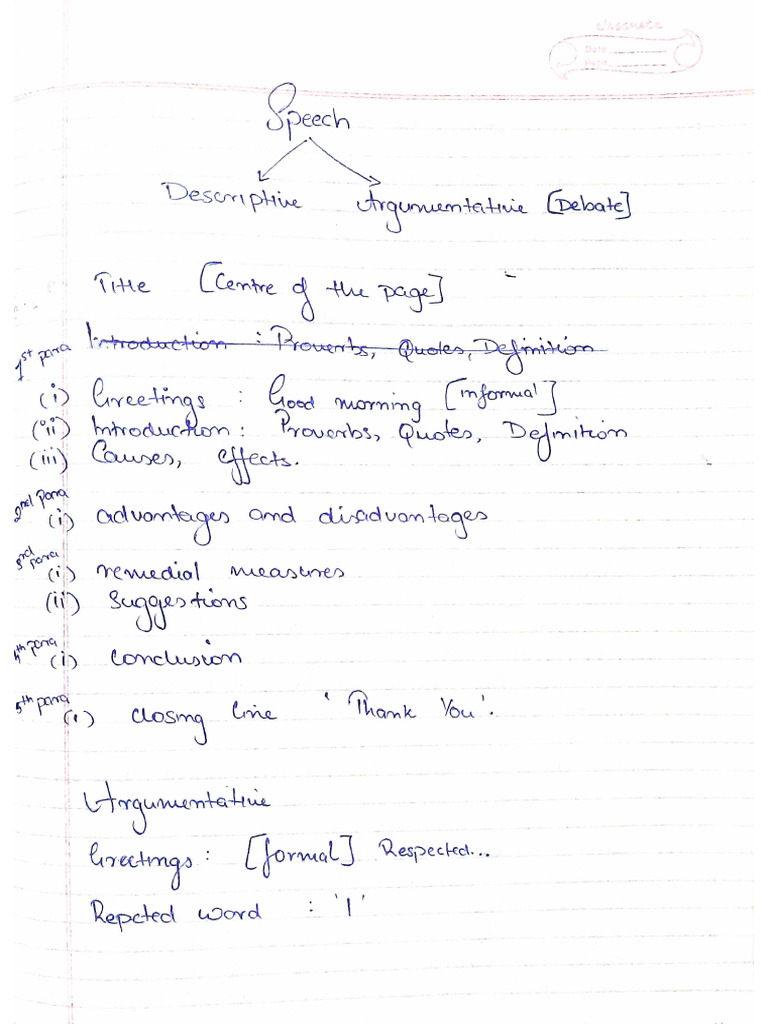 classmate
Date
Page
Speech
Descriptive Argumentative [Debate]
Title [Centre of the page]
1st para Introduction : Proverbs, Quotes, Definition
(i) Greetings : Good morning [informal]
(ii) Introduction : Proverbs, Quotes, Definition
(iii) Causes, effects.
2nd para
(i) advantages and disadvantages
3rd para
(i) remedial measures
(ii) suggestions
4th para
(i) conclusion
5th para
(i) closing line 'Thank You'.
Argumentative
Greetings : [formal] Respected...
Repeted word : 'I'